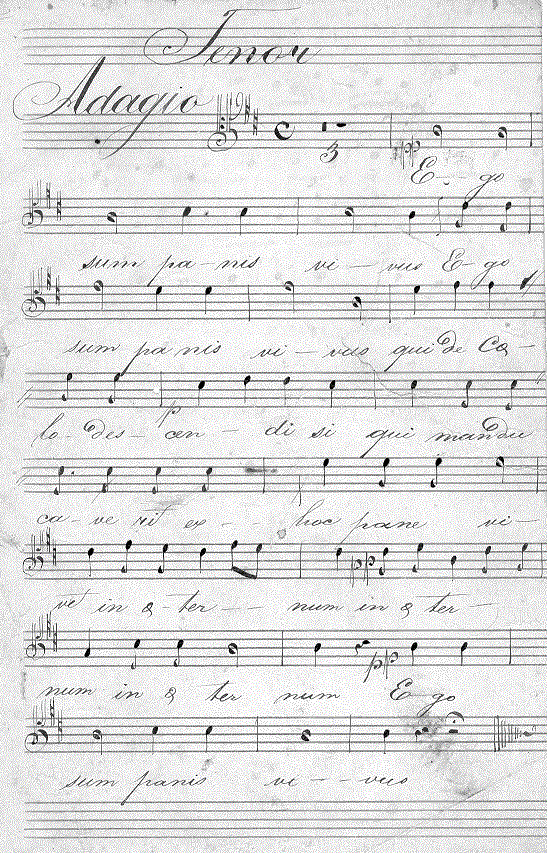 Tenor
Adagio
3 pp
E - - go
sum pa - nis vi - vus E - go
sum pa nis vi - vus qui de Cœ -
p
lo - des - cen - di si qui mandu
ca - ve rit ex - - hoc pane vi -
pp
vet in æ - ter - - num in æ ter -
pp
num in æ ter num E go
sum panis vi - - vus